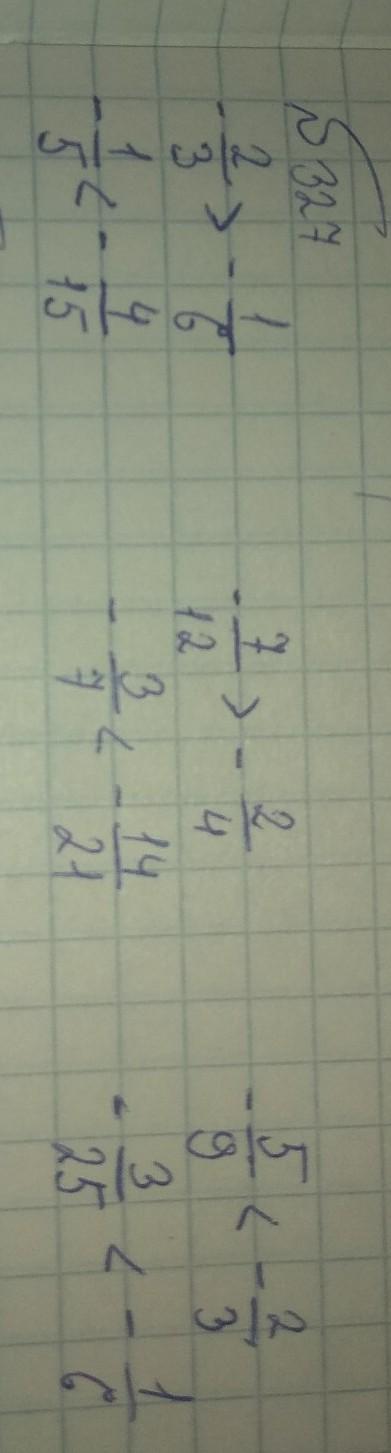 № 327
-2/3 > -1/6   -7/12 > -2/4   -5/9 < -2/3
-1/5 < -4/15   -3/7 < -14/21   -3/25 < -1/6